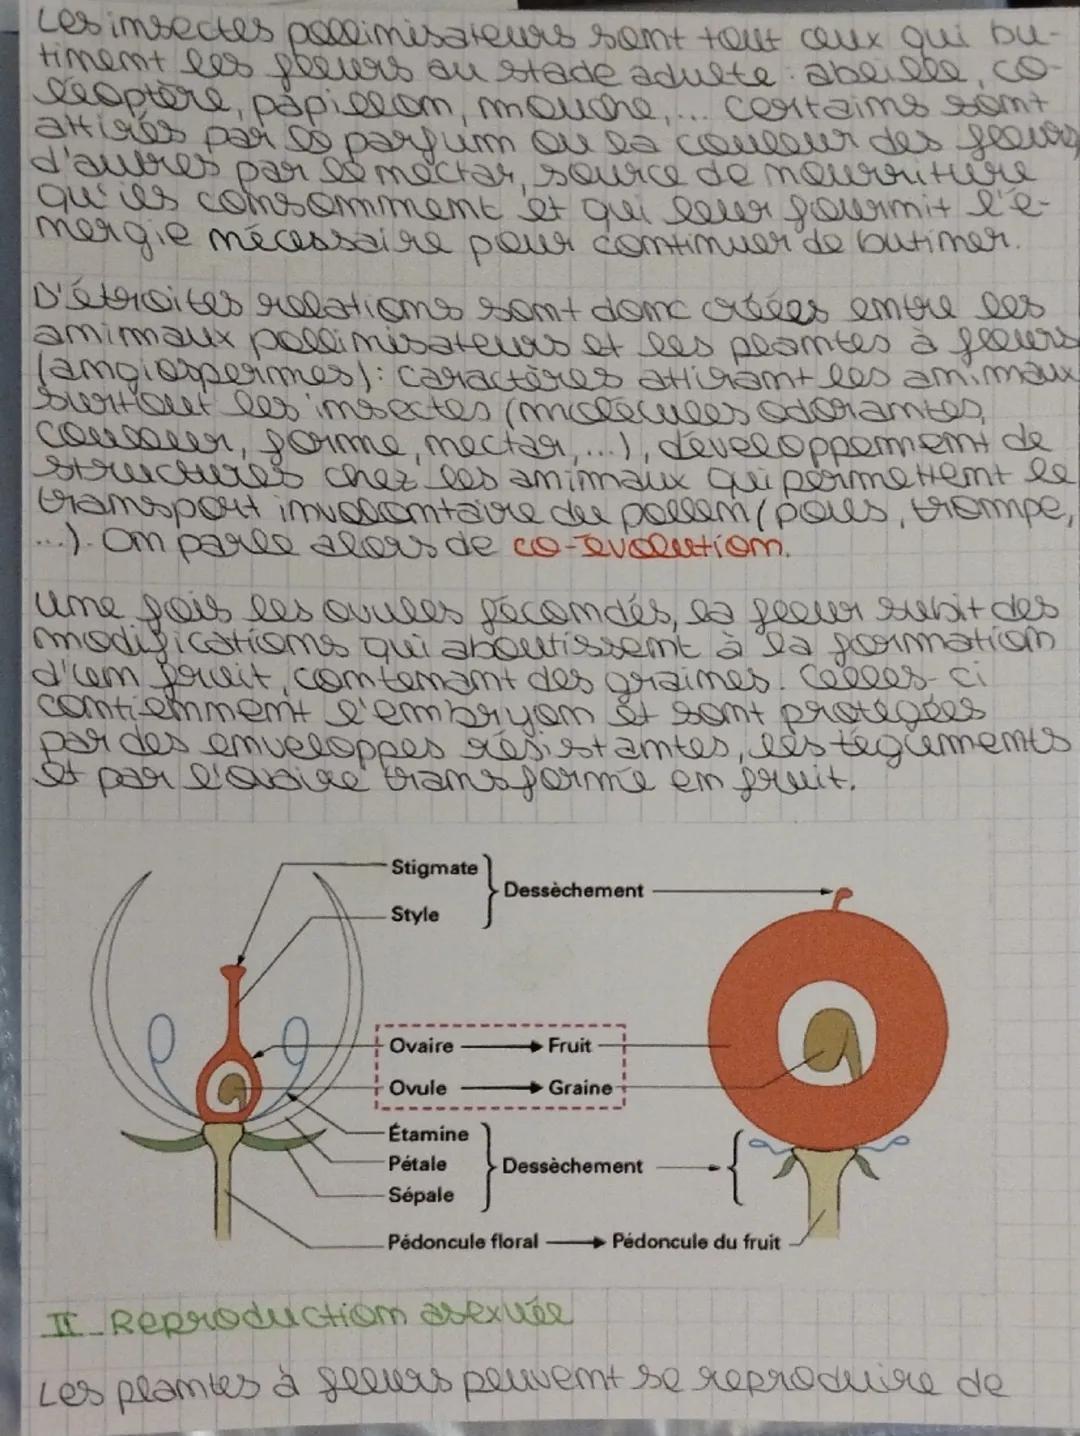 Les insectes pollinisateurs sont tout ceux qui bu-
tinent les fleurs au stade adulte : abeille, co-
léoptère, papillon, mouche,... certains sont
attirés par le parfum ou la couleur des fleurs,
d'autres par le nectar, source de nourriture
qu'ils consomment et qui leur fournit l'é-
nergie nécessaire pour continuer de butiner.
D'étroites relations sont donc créées entre les
animaux pollinisateurs et les plantes à fleurs
(angiospermes) : caractères attirant les animaux
surtout les insectes (molécules odorantes,
couleur, forme, nectar,...), développement de
structures chez les animaux qui permettent le
transport involontaire du pollen (poils, trompe,
...). On parle alors de co-évolution.
Une fois les ovules fécondés, la fleur subit des
modifications qui aboutissent à la formation
d'un fruit, contenant des graines. Celles-ci
contiennent l'embryon et sont protégées
par des enveloppes résistantes, les téguments
et par l'ovaire transformé en fruit.
Stigmate
Dessèchement
Style
Ovaire → Fruit
Ovule → Graine
Étamine
Pétale
Dessèchement
Sépale
Pédoncule floral → Pédoncule du fruit
II - Reproduction asexuée
Les plantes à fleurs peuvent se reproduire de